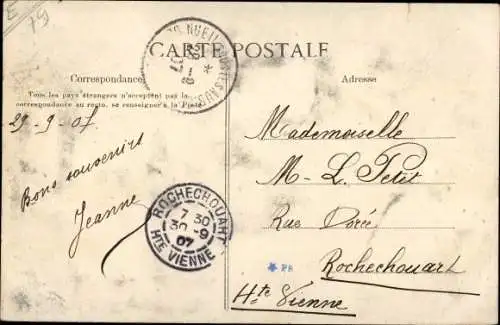 E
79
CARTE POSTALE
Correspondance
Adresse
Tous les pays étrangers n'acceptent pas la
correspondance au recto, se renseigner à la Poste
29-9-07
Bons souvenirs
Jeanne
Mademoiselle
M-L. Petit
Rue Dorée
Rochechouart
Hte Vienne
ROCHECHOUART
7 30
30-9
07
HTE VIENNE
* PB